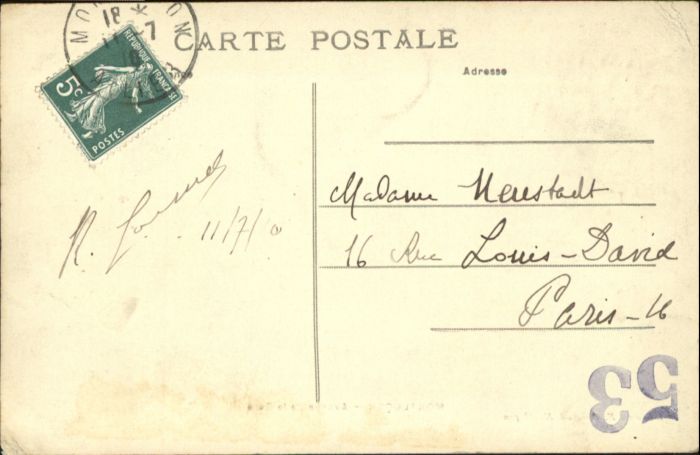 CARTE POSTALE
Adresse
RÉPUBLIQUE FRANÇAISE
5c
POSTES
18 * 7
11/7/10
Madame Neustadt
16 Rue Louis-David
Paris-16
53